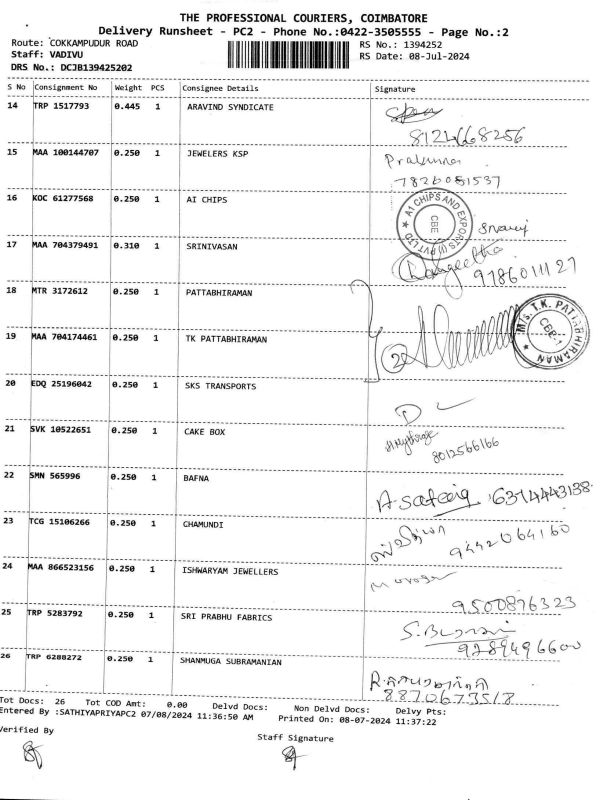 THE PROFESSIONAL COURIERS, COIMBATORE
Delivery Runsheet - PC2 - Phone No.:0422-3505555 - Page No.:2
Route: COKKAMPUDUR ROAD RS No.: 1394252
Staff: VADIVU RS Date: 08-Jul-2024
DRS No.: DCJB139425202
S No Consignment No Weight PCS Consignee Details Signature
14 TRP 1517793 0.445 1 ARAVIND SYNDICATE
8124668256
15 MAA 100144707 0.250 1 JEWELERS KSP
7826081537
16 KOC 61277568 0.250 1 AI CHIPS
A1 CHIPS AND EXPORTS (I) PVT LTD
CBE
17 MAA 704379491 0.310 1 SRINIVASAN
Sangeetha
9786011127
18 MTR 3172612 0.250 1 PATTABHIRAMAN
M/s. T.K. PATTABHIRAMAN
CBE-1
19 MAA 704174461 0.250 1 TK PATTABHIRAMAN
2
20 EDQ 25196042 0.250 1 SKS TRANSPORTS
21 SVK 10522651 0.250 1 CAKE BOX
8012566166
22 SMN 565996 0.250 1 BAFNA
6374443138
23 TCG 15106266 0.250 1 CHAMUNDI
9442064160
24 MAA 866523156 0.250 1 ISHWARYAM JEWELLERS
9500896323
25 TRP 5283792 0.250 1 SRI PRABHU FABRICS
9289496600
26 TRP 6288272 0.250 1 SHANMUGA SUBRAMANIAN
8870673518
Tot Docs: 26 Tot COD Amt: 0.00 Delvd Docs: Non Delvd Docs: Delvy Pts:
Entered By :SATHIYAPRIYAPC2 07/08/2024 11:36:50 AM Printed On: 08-07-2024 11:37:22
Verified By
Staff Signature